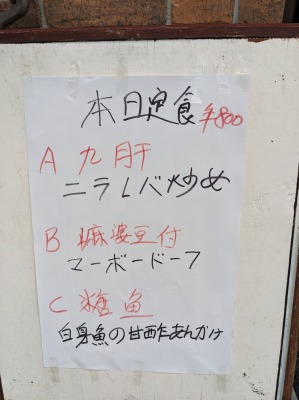 本日定食 ¥800
A 九肝
ニラレバ炒め
B 麻婆豆付
マーボードーフ
C 糖魚
白身魚の甘酢あんかけ